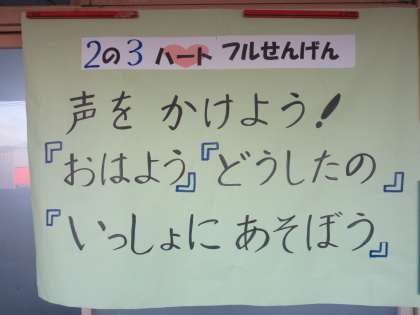 2の3 ハートフルせんげん
声を かけよう!
『おはよう』『どうしたの』
『いっしょに あそぼう』